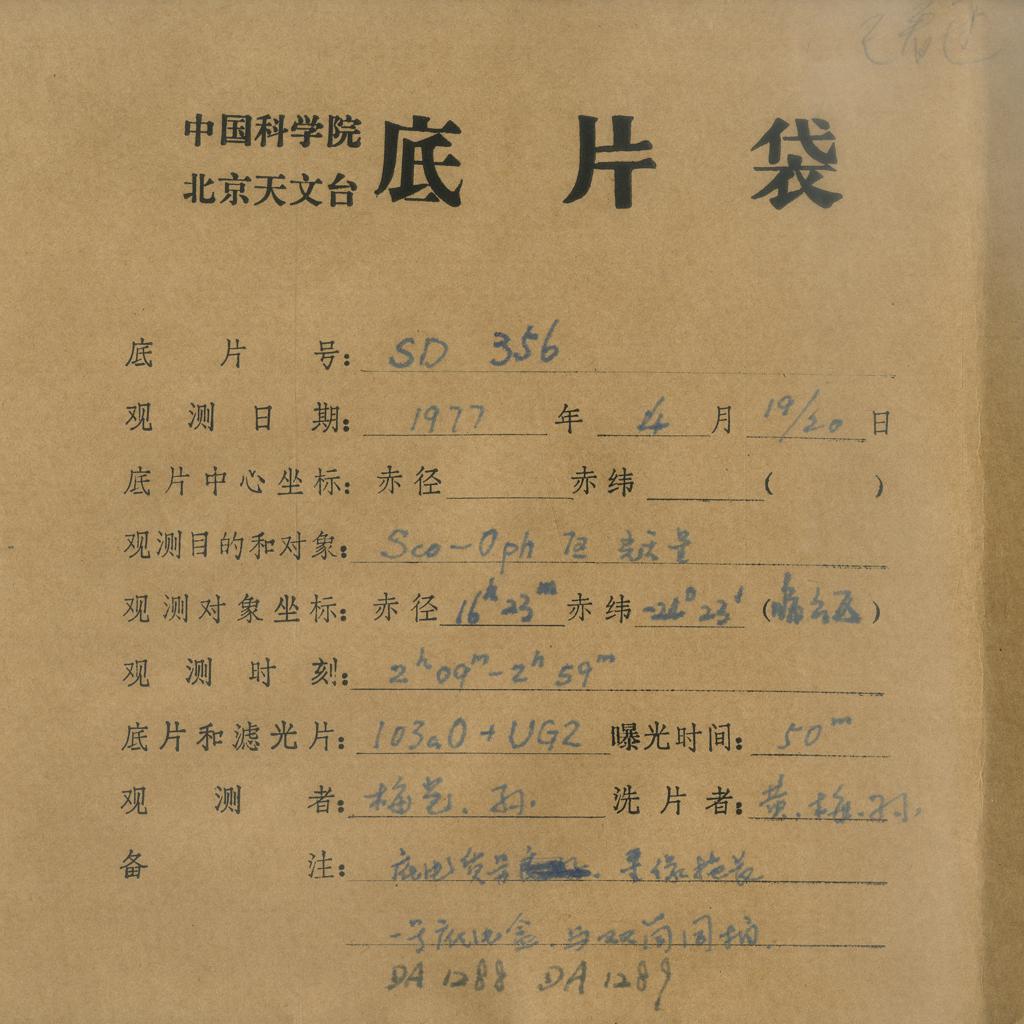 已看过
中国科学院
北京天文台
底片袋
底片号: SD 356
观测日期: 1977 年 4 月 19/20 日
底片中心坐标: 赤径 赤纬 ( )
观测目的和对象: Sco-Oph
观测对象坐标: 赤径 16h23m 赤纬 -24°23′ ( )
观测时刻: 2h09m-2h59m
底片和滤光片: 103aO+UG2 曝光时间: 50m
观测者: 梅 孙. 洗片者: 黄.梅.孙.
备注:
一号底片盒.与双筒同拍.
DA 1288 DA 1289